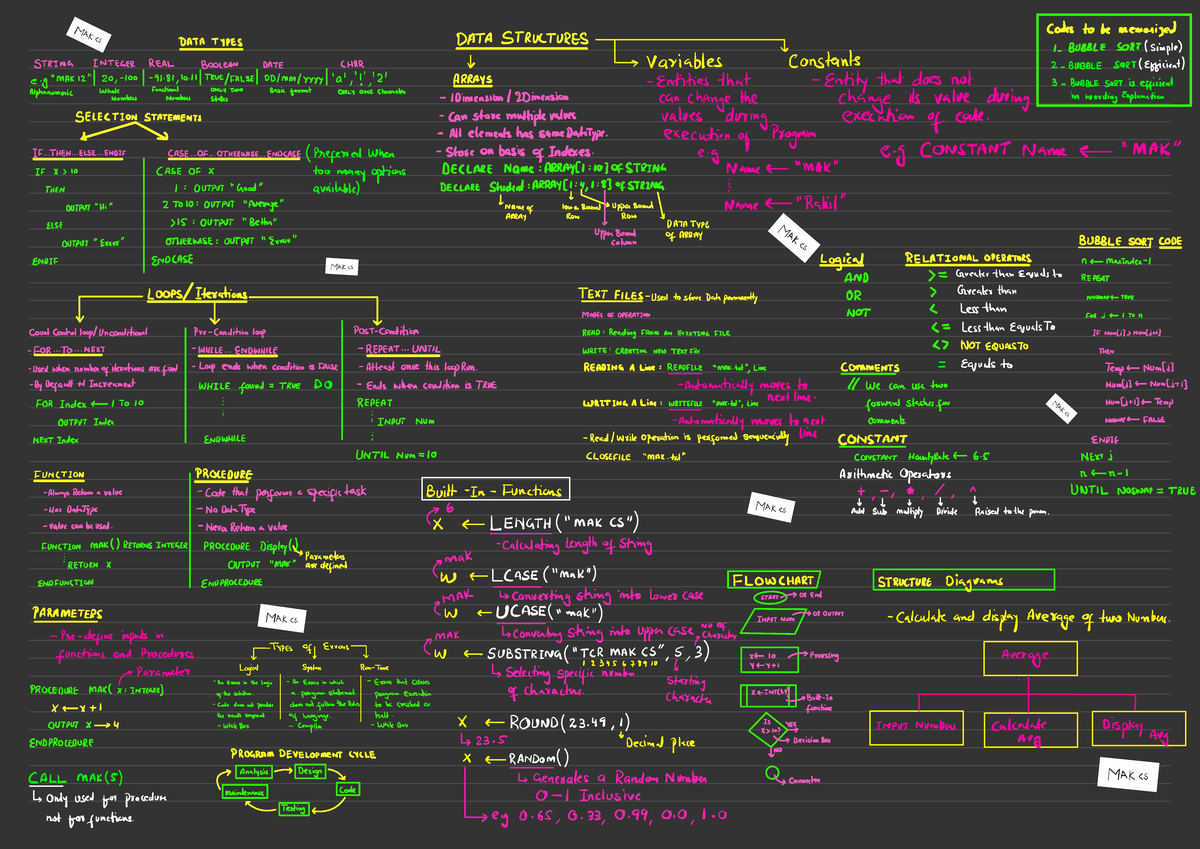 MAK CS
DATA TYPES
STRING INTEGER REAL BOOLEAN DATE CHAR
e.g "MAK 12" 20, -100 -91.81, 10.11 TRUE/FALSE DD/mm/yyyy 'a', '!', '2'
Alphanumeric Whole Numbers Fractional Numbers ONLY TWO States Basic format ONLY ONE Character
SELECTION STATEMENTS
IF...THEN...ELSE...ENDIF
IF X > 10
THEN
OUTPUT "Hi"
ELSE
OUTPUT "Error"
ENDIF
CASE OF...OTHERWISE...ENDCASE
(Preferred When
too many options
available)
CASE OF X
1 : OUTPUT "Good"
2 TO 10 : OUTPUT "Average"
>15 : OUTPUT "Better"
OTHERWISE : OUTPUT "Error"
ENDCASE
MAK CS
DATA STRUCTURES
ARRAYS
- 1Dimension / 2Dimension
- Can store multiple values
- All elements has same DataType.
- Store on basis of Indexes.
DECLARE Name : ARRAY[1:10] OF STRING
DECLARE Student : ARRAY[1:4, 1:8] OF STRING
Name of ARRAY
Lower Bound Row
Upper Bound Row
Upper Bound column
DATA TYPE OF ARRAY
Variables
- Entities that
can change the
values during
execution of Program
e.g
Name ← "MAK"
Name ← "Rahil"
Constants
- Entity that does not
change its value during
execution of code.
e.g CONSTANT Name ← "MAK"
Codes to be memorized
1 - BUBBLE SORT (Simple)
2 - BUBBLE SORT (Efficient)
3 - BUBBLE SORT is efficient
in wording Explanation
MAK CS
LOOPS/Iterations
Count Control loop/Unconditional
- FOR...TO...NEXT
- Used when number of iterations are fixed
- By Default +1 Increament
FOR Index ← 1 TO 10
OUTPUT Index
NEXT Index
Pre-Condition loop
- WHILE...ENDWHILE
- Loop ends when condition is FALSE
WHILE found = TRUE DO
ENDWHILE
Post-Condition
- REPEAT...UNTIL
- Atleast once this loop Run.
- Ends when condition is TRUE
REPEAT
INPUT Num
UNTIL Num = 10
TEXT FILES - Used to store Data permanently
MODES OF OPERATION
READ : Reading FROM AN EXISTING FILE
WRITE : CREATING NEW TEXT File
READING A Line : READFILE "mak.txt", Line
- Automatically moves to
next line.
WRITING A Line : WRITEFILE "mak.txt", Line
- Automatically moves to next
line
- Read/Write Operation is performed sequencially
CLOSEFILE "mak.txt"
Logical
AND
OR
NOT
RELATIONAL OPERATORS
>= Greater than Equals to
> Greater than
< Less than
<= Less than Equals To
<> NOT EQUALS TO
= Equals to
COMMENTS
// We can use two
forward slashes for
comments.
MAK CS
CONSTANT
CONSTANT HourlyRate ← 6.5
Arithmetic Operators
+ , - , * , / , ^
Add Sub multiply Divide Raised to the power.
BUBBLE SORT CODE
n ← maxIndex-1
REPEAT
NOSWAP ← TRUE
For j ← 1 TO n
IF Num[j] > Num[j+1]
THEN
Temp ← Num[j]
Num[j] ← Num[j+1]
Num[j+1] ← Temp
NOSWAP ← FALSE
ENDIF
NEXT j
n ← n-1
UNTIL NOSWAP = TRUE
FUNCTION
- Always Return a value
- Has DataType
- value can be used.
FUNCTION MAK() RETURNS INTEGER
RETURN X
ENDFUNCTION
PROCEDURE
- Code that performs a specific task
- No DataType
- Never Return a value
PROCEDURE Display()
OUTPUT "MAK"
ENDPROCEDURE
Parameters are defined
PARAMETERS
MAK CS
- Pre-define inputs in
functions and Procedures
Parameter
PROCEDURE MAK(X : INTEGER)
X ← X + 1
OUTPUT X → 4
ENDPROCEDURE
CALL MAK(5)
↳ Only used for procedure
not for functions.
TYPES of Errors
Logical
- An Error in the logic
of the solution
- Code does not produce
the result required
- White Box
Syntax
- An Error in which
a program statement
does not follow the Rules
of language.
- Compiler
Run-Time
- Errors that causes
program Execution
to be crashed or
halt
- White Box
PROGRAM DEVELOPMENT CYCLE
Analysis
Design
Code
Testing
maintenance
Built-In-Functions
6
X ← LENGTH("MAK CS")
- Calculating length of String
mak
W ← LCASE("mak")
↳ Converting string into lower case
MAK
W ← UCASE("mak")
↳ Converting String into Upper case
MAK
W ← SUBSTRING("TCR MAK CS", 5, 3)
1 2 3 4 5 6 7 8 9 10
No of Character
↳ Selecting specific number
of characters.
Starting Character
X ← ROUND(23.49, 1)
↳ 23.5
Decimal place
X ← RANDOM()
↳ Generates a Random Number
0-1 Inclusive
eg 0.65, 0.33, 0.99, 0.0, 1.0
MAK CS
FLOWCHART
START → OR End
INPUT Num → OR OUTPUT
X ← 10
Y ← Y+1
Processing
Built-In function
Is X>10?
YES
NO
Decision Box
Connector
STRUCTURE Diagrams
- Calculate and display Average of two Number.
Average
INPUT Numbers
Calculate Avg
Display Avg
MAK CS